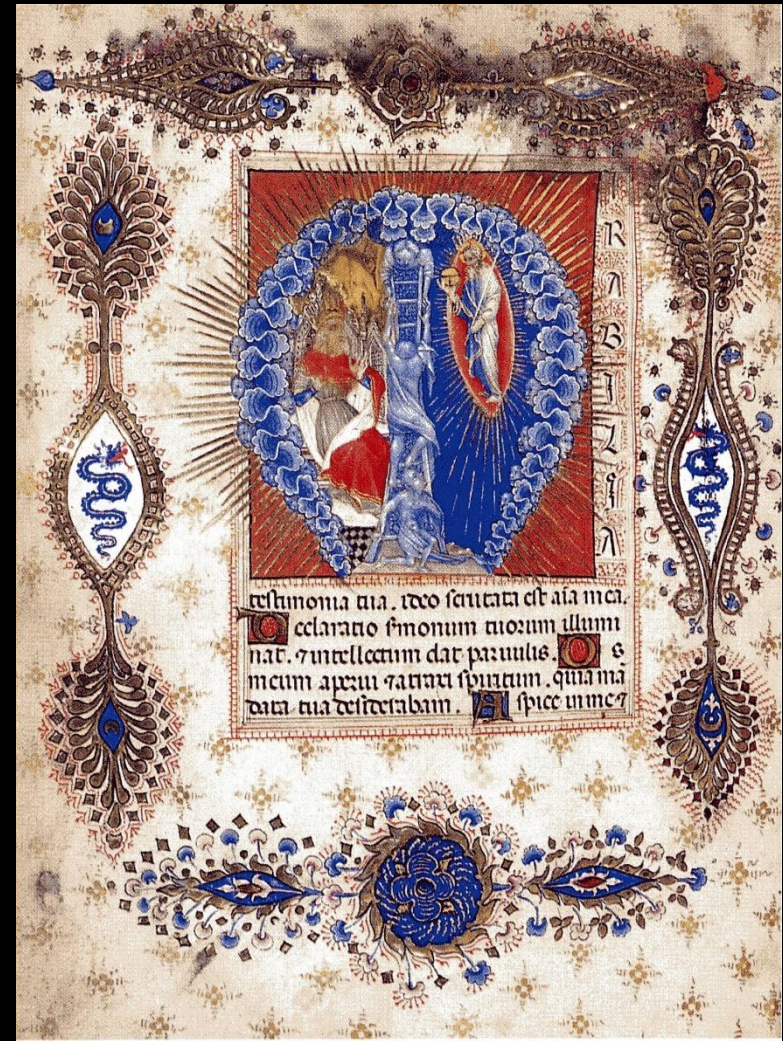 RABILIA
testimonia tua. ideo scrutata est aīa mea.
Declaratio s̄monum tuorum illumi
nat. ⁊ intellectum dat paruulis. Os
meum aperui ⁊ atraxi spiritum. quia mā
data tua desiderabam. Aspice in me ⁊